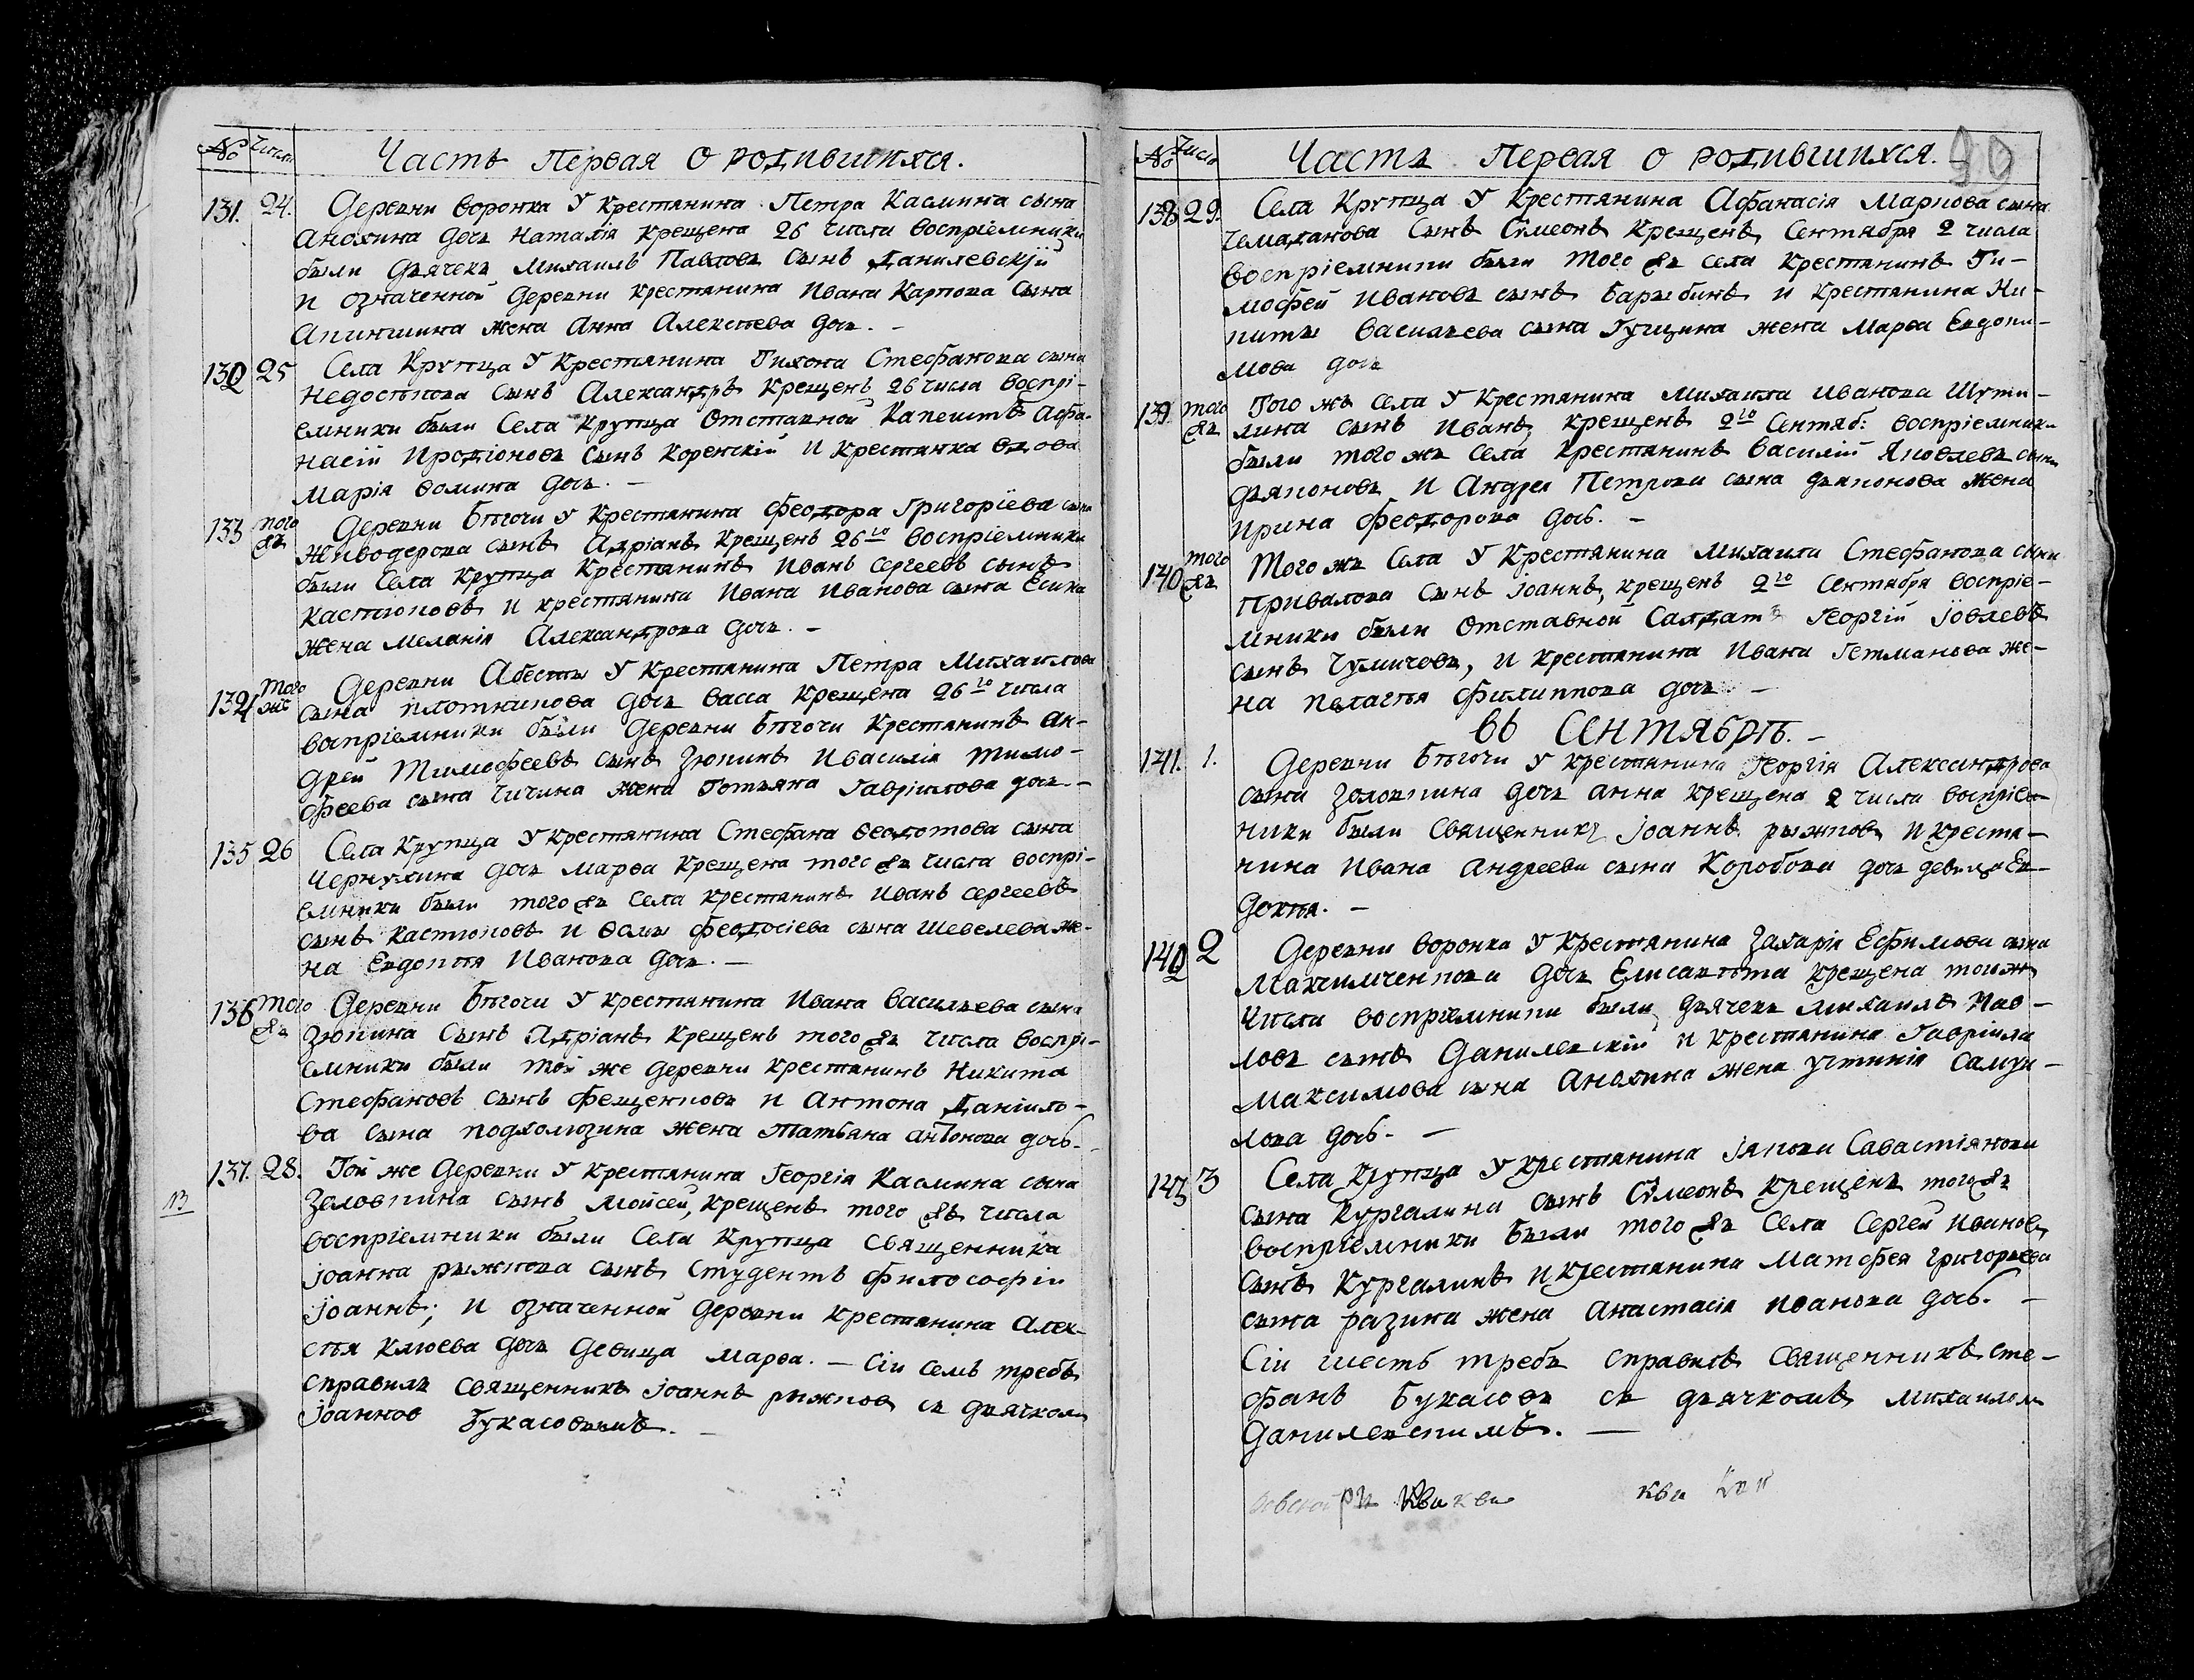 № Число Часть Первая О родившихся.
131. 24. Деревни Воронка У Крестянина Петра Касмина сына
Анохина дочь Наталія Крещена 26 числа восприемники
были Дьячекъ Михаилъ Павловъ Сынъ Данилевскій
и означенной деревни крестянина Ивана Карпова Сына
Апишина жена Анна Алексѣева дочь. –
132 25 Села Крупца У Крестянина Тихона Стефанова сына
Недосѣкова Сынъ Александръ Крещенъ 26 числа воспрі-
емники были Села Крупца Отставной Капеистъ Афа-
насій Иродіоновъ Сынъ Коренскій и Крестянка вдова
Марія Ѳомина дочь. –
133 того жъ Деревни Бѣгочи У Крестянина Феодора Григоріева сына
Живодерова сынъ Адріанъ Крещенъ 26го Восприемники
были Села Крупца Крестянинъ Иванъ Сергеевъ сынъ
Кастюковъ и крестянина Ивана Иванова сына Есина
жена Меланія Александрова дочь. –
134 того жъ Деревни Абесты У Крестянина Петра Михаилова
сына Плотникова дочь Васса Крещена 26го числа
восприемники были Деревни Бѣгочи Крестянинъ Ан-
дрей Тимофеевъ сынъ Зюкинъ И Василія Тимо-
феева сына Чичина жена Татьяна Гавріилова дочь. –
135 26 Села Крупца У Крестянина Стефана Ѳедотова сына
Чернухина дочь Марѳа Крещена того жъ числа воспрі-
емники были того жъ Села крестянинъ Иванъ Сергеевъ
сынъ Кастюковъ и Ѳомы Феодосіева сына Шевелева же-
на Евдокѣя Иванова дочь. –
136 того жъ Деревни Бѣгочи У крестянина Ивана Васильева сына
Зюкина Сынъ Адріанъ Крещенъ того жъ числа воспрі-
емники были той же деревни Крестянинъ Никита
Стефановъ сынъ Фещенковъ и Антона Даніило-
ва сына Подколюзина жена Татьяна Антонова дочь. –
137. 28. Той же Деревни У Крестянина Георгія Касмина сына
Золовкина сынъ Мойсей, Крещенъ того жъ числа
восприемники были Села Крупца Священника
Іоанна Рыжкова сынъ Студентъ Философіи
Іоаннъ; и означенной деревни Крестянина Алек-
сѣя Клюева дочь Девица Марѳа. – Сіи Семь требъ
справилъ Священникъ Іоаннъ Рыжковъ съ дьячкомъ
Іоанномъ Букасовымъ. –
13
№ Число Часть Первая О родившихся. – 90
138 29. Села Крупца У Крестянина Афанасія Маркова сына
Чемаданова Сынъ Сѵмеонъ Крещенъ, Сентября 2 числа
восприемники были того жъ села крестянинъ Ти-
мофей Ивановъ сынъ Барыбинъ и крестянина Ни-
киты Васильева сына Гущина жена Марѳа Евдоки-
мова дочь
139. того жъ Того жъ Села У Крестянина Михаила Иванова Шути-
лина сынъ Иванъ, крещенъ 2го Сентяб: восприемники
были того жъ Села Крестянинъ Василій Яковлевъ сынъ
Дьяконовъ и Андрея Петрова сына Дьяконова жена
Ирина Феодорова дочь. –
140 того жъ Того жъ Села У Крестянина Михаила Стефанова сына
Привалова Сынъ Іоаннъ, крещенъ 2го Сентября воспріе-
мники были Отставной Салдатъ Георгій Іовлевъ
сынъ Чумичевъ, и крестянина Ивана Гетманова же-
на Пелагѣя Филиппова дочь. –
Въ Сентябрѣ. –
141. 1. Деревни Бѣгочи У крестянина Георгія Александрова
сына Золовкина дочь Анна крещена 2 числа восприем-
ники были Священникъ Іоаннъ Рыжковъ и крестя-
нина Ивана Андреева сына Коробова дочь девица Ев-
докѣя. –
142 2 Деревни Воронка У Крестянина Захарія Ефимова сына
Махимченкова дочь Елисавѣта Крещена того жъ
числа восприемники были, дьячекъ Михаилъ Пав-
ловъ сынъ Данилевскій и крестянина Гавріила
Максимова сына Анохина жена Устинія Самуи-
лова дочь. –
143 3 Села Крупца У крестянина Іякова Савастіянова
сына Кургалина сынъ Сѵмеонъ Крещенъ того жъ
восприемники были того жъ Села Сергей Ивановъ
сынъ Кургалинъ и крестянина Матфея Григорьева
сына Разина жена Анастасія Иванова дочь. –
Сіи шесть требъ справилъ Священникъ Сте-
фанъ Букасовъ съ дьячкомъ Михаиломъ
Данилевскимъ. –